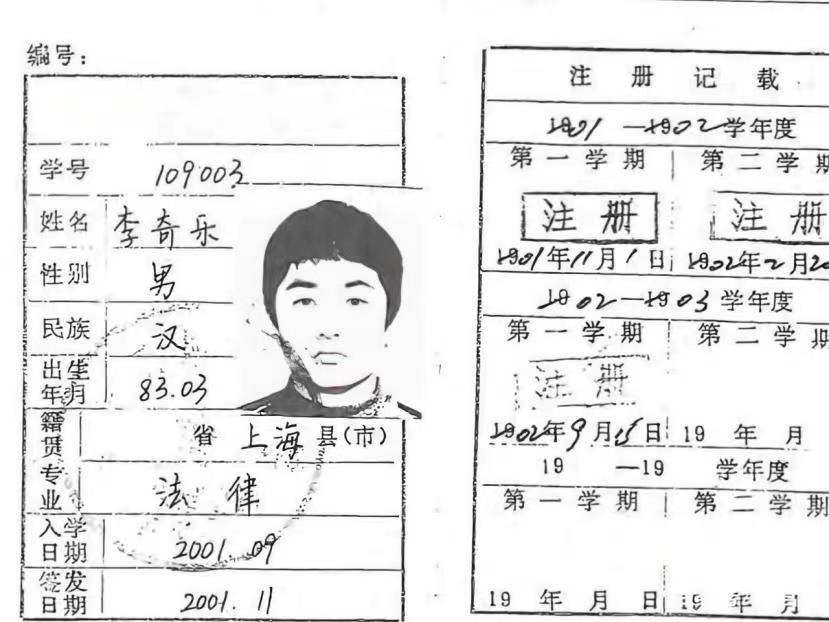 编号：
学号 109003
姓名 李奇乐
性别 男
民族 汉
出生年月 83.03
籍贯 省 上海 县(市)
专业 法律
入学日期 2001.09
签发日期 2001.11
注册记载
1901—1902学年度
第一学期 第二学期
注册 注册
1901年11月1日 1902年2月20
1902—1903学年度
第一学期 第二学期
注册
1902年9月15日 19 年 月
19 —19 学年度
第一学期 第二学期
19 年 月 日 19 年 月